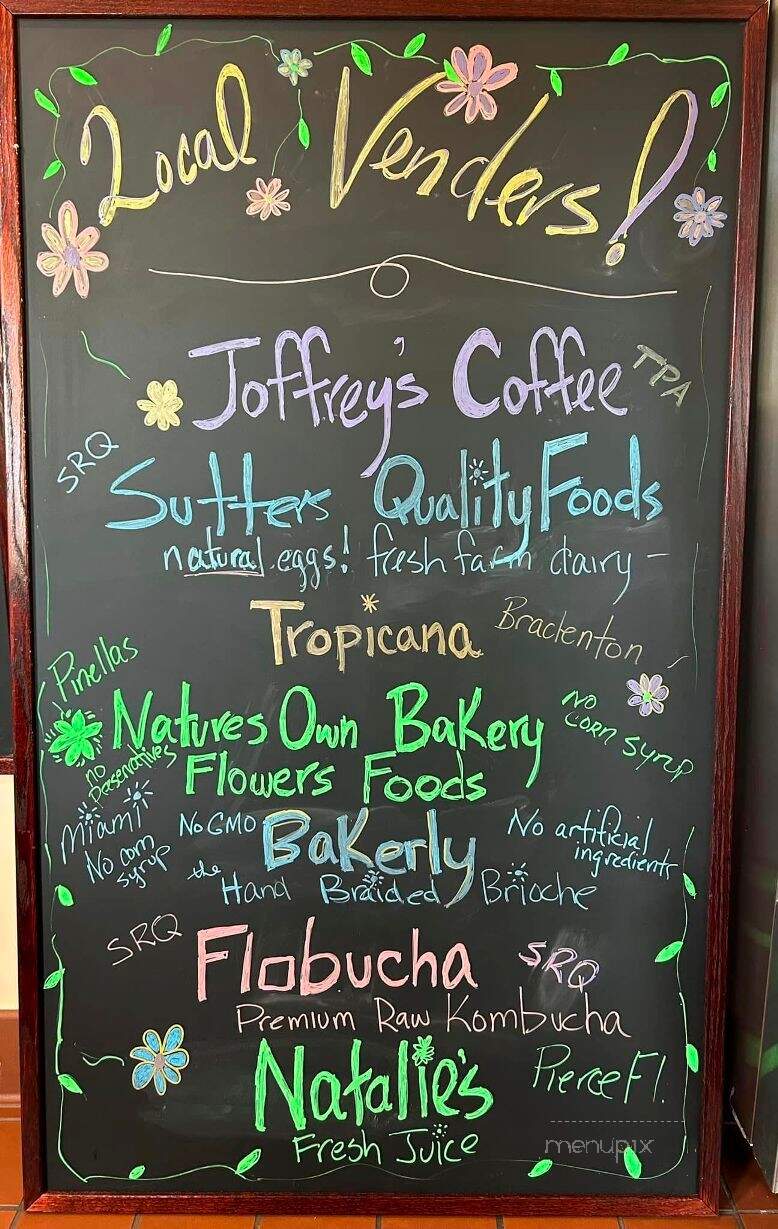 Local Venders!
Joffrey's Coffee TPA
SRQ
Sutters Quality Foods
natural eggs! fresh farm dairy -
Tropicana Bradenton
Pinellas
Natures Own Bakery No corn syrup
no preservatives
Flowers Foods
Miami No GMO Bakerly No artificial ingredients
No corn syrup
the Hand Braided Brioche
SRQ Flobucha SRQ
Premium Raw Kombucha
Natalie's Pierce Fl.
Fresh Juice
menupix